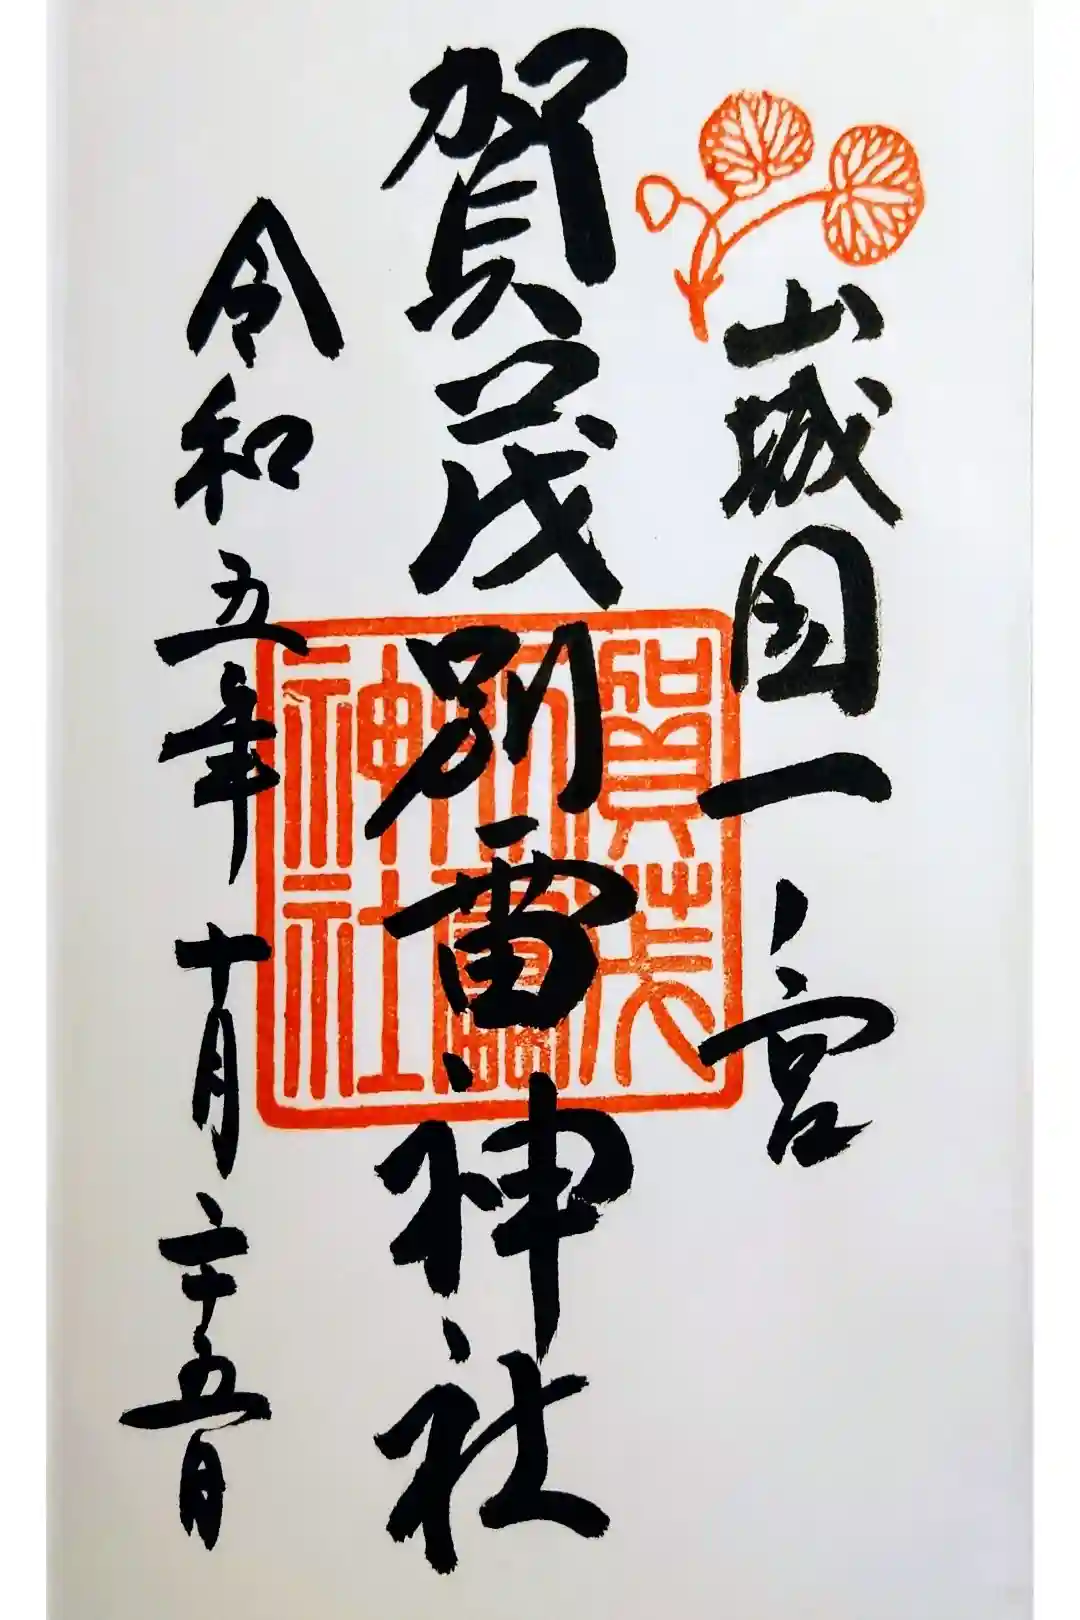 山城国一ノ宮
賀茂別雷神社
令和五年十月二十五日
賀茂
別雷
神社